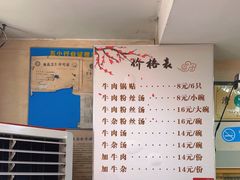 五小行业健康
价格表
牛肉锅贴……8元/6只
牛肉粉丝汤……8元/小碗
牛肉粉丝汤……16元/大碗
牛杂粉丝汤……16元/碗
牛肉汤……14元/碗
牛杂汤……14元/碗
加牛肉……14元/份
加牛杂……14元/份